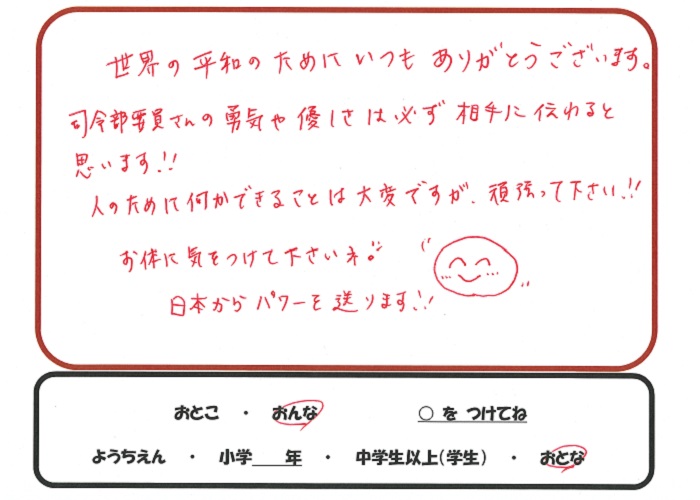 世界の平和のためにいつもありがとうございます。
司令部要員さんの勇気や優しさは必ず相手に伝わると
思います!!
人のために何かができることは大変ですが、頑張って下さい!!
お体に気をつけて下さいネ。
日本からパワーを送ります!!
おとこ ・ おんな ○ を つけてね
ようちえん ・ 小学 年 ・ 中学生以上(学生) ・ おとな